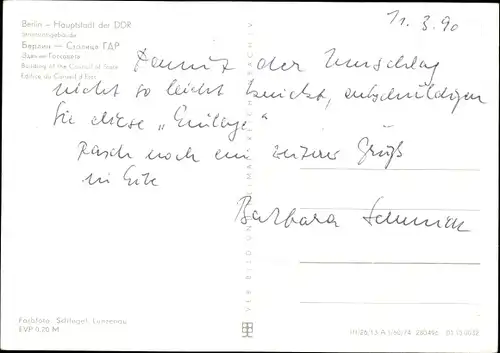 Berlin – Hauptstadt der DDR
Staatsratsgebäude
Берлин — Столица ГДР
Здание Госсовета
Building of the Council of State
Édifice du Conseil d'État
11. 3. 90
Damit der Umschlag
nicht so leicht knickt, entschuldigen
Sie diese „Einlage“
Rasch noch ein Gruß
in Eile
Barbara
VEB BILD UND HEIMAT REICHENBACH I. V.
Farbfoto: Schlegel, Lunzenau
EVP 0,20 M